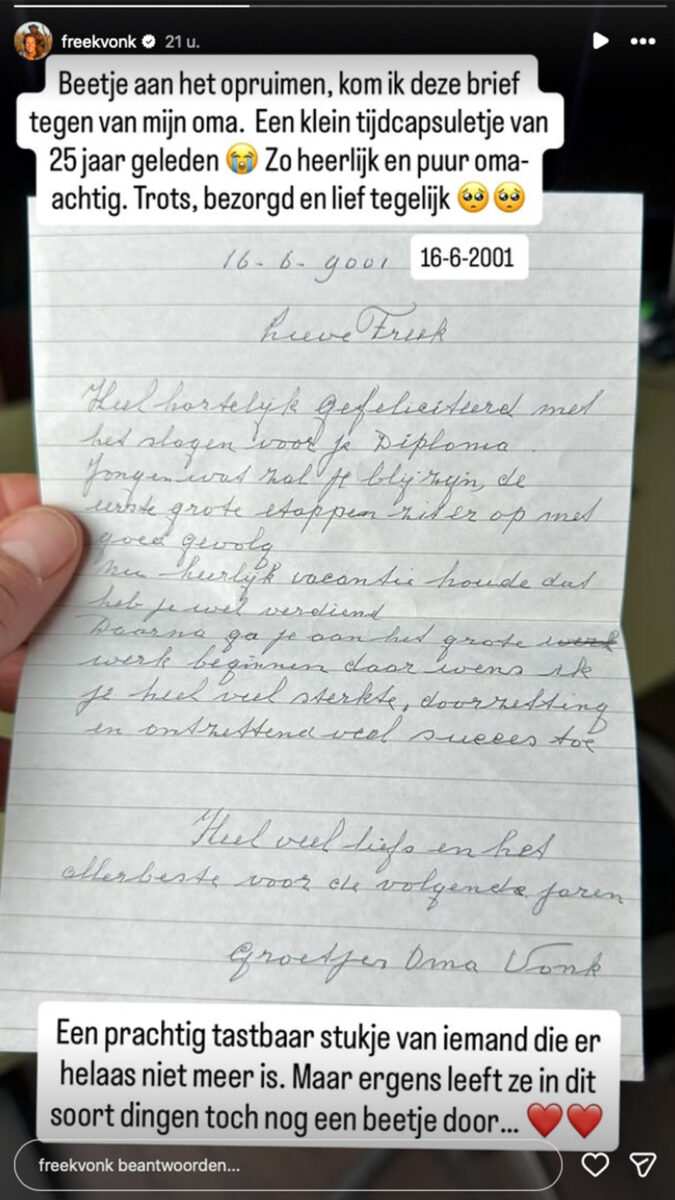 freekvonk 21 u.
Beetje aan het opruimen, kom ik deze brief
tegen van mijn oma. Een klein tijdcapsuletje van
25 jaar geleden 😭 Zo heerlijk en puur oma-
achtig. Trots, bezorgd en lief tegelijk 🥺🥺
16-6-2001
16-6-2001
Lieve Freek
Heel hartelijk gefeliciteerd met
het slagen voor je Diploma.
Jongen wat zal je blij zijn, de
eerste grote etappen zit er op met
goed gevolg
Nu heerlijk vacantie houde dat
heb je wel verdiend
Daarna ga je aan het grote
werk beginnen daar wens ik
je heel veel sterkte, doorzetting
en ontzettend veel succes toe
Heel veel liefs en het
allerbeste voor de volgende jaren
Groetjes Oma Vonk
Een prachtig tastbaar stukje van iemand die er
helaas niet meer is. Maar ergens leeft ze in dit
soort dingen toch nog een beetje door... ❤️❤️
freekvonk beantwoorden...